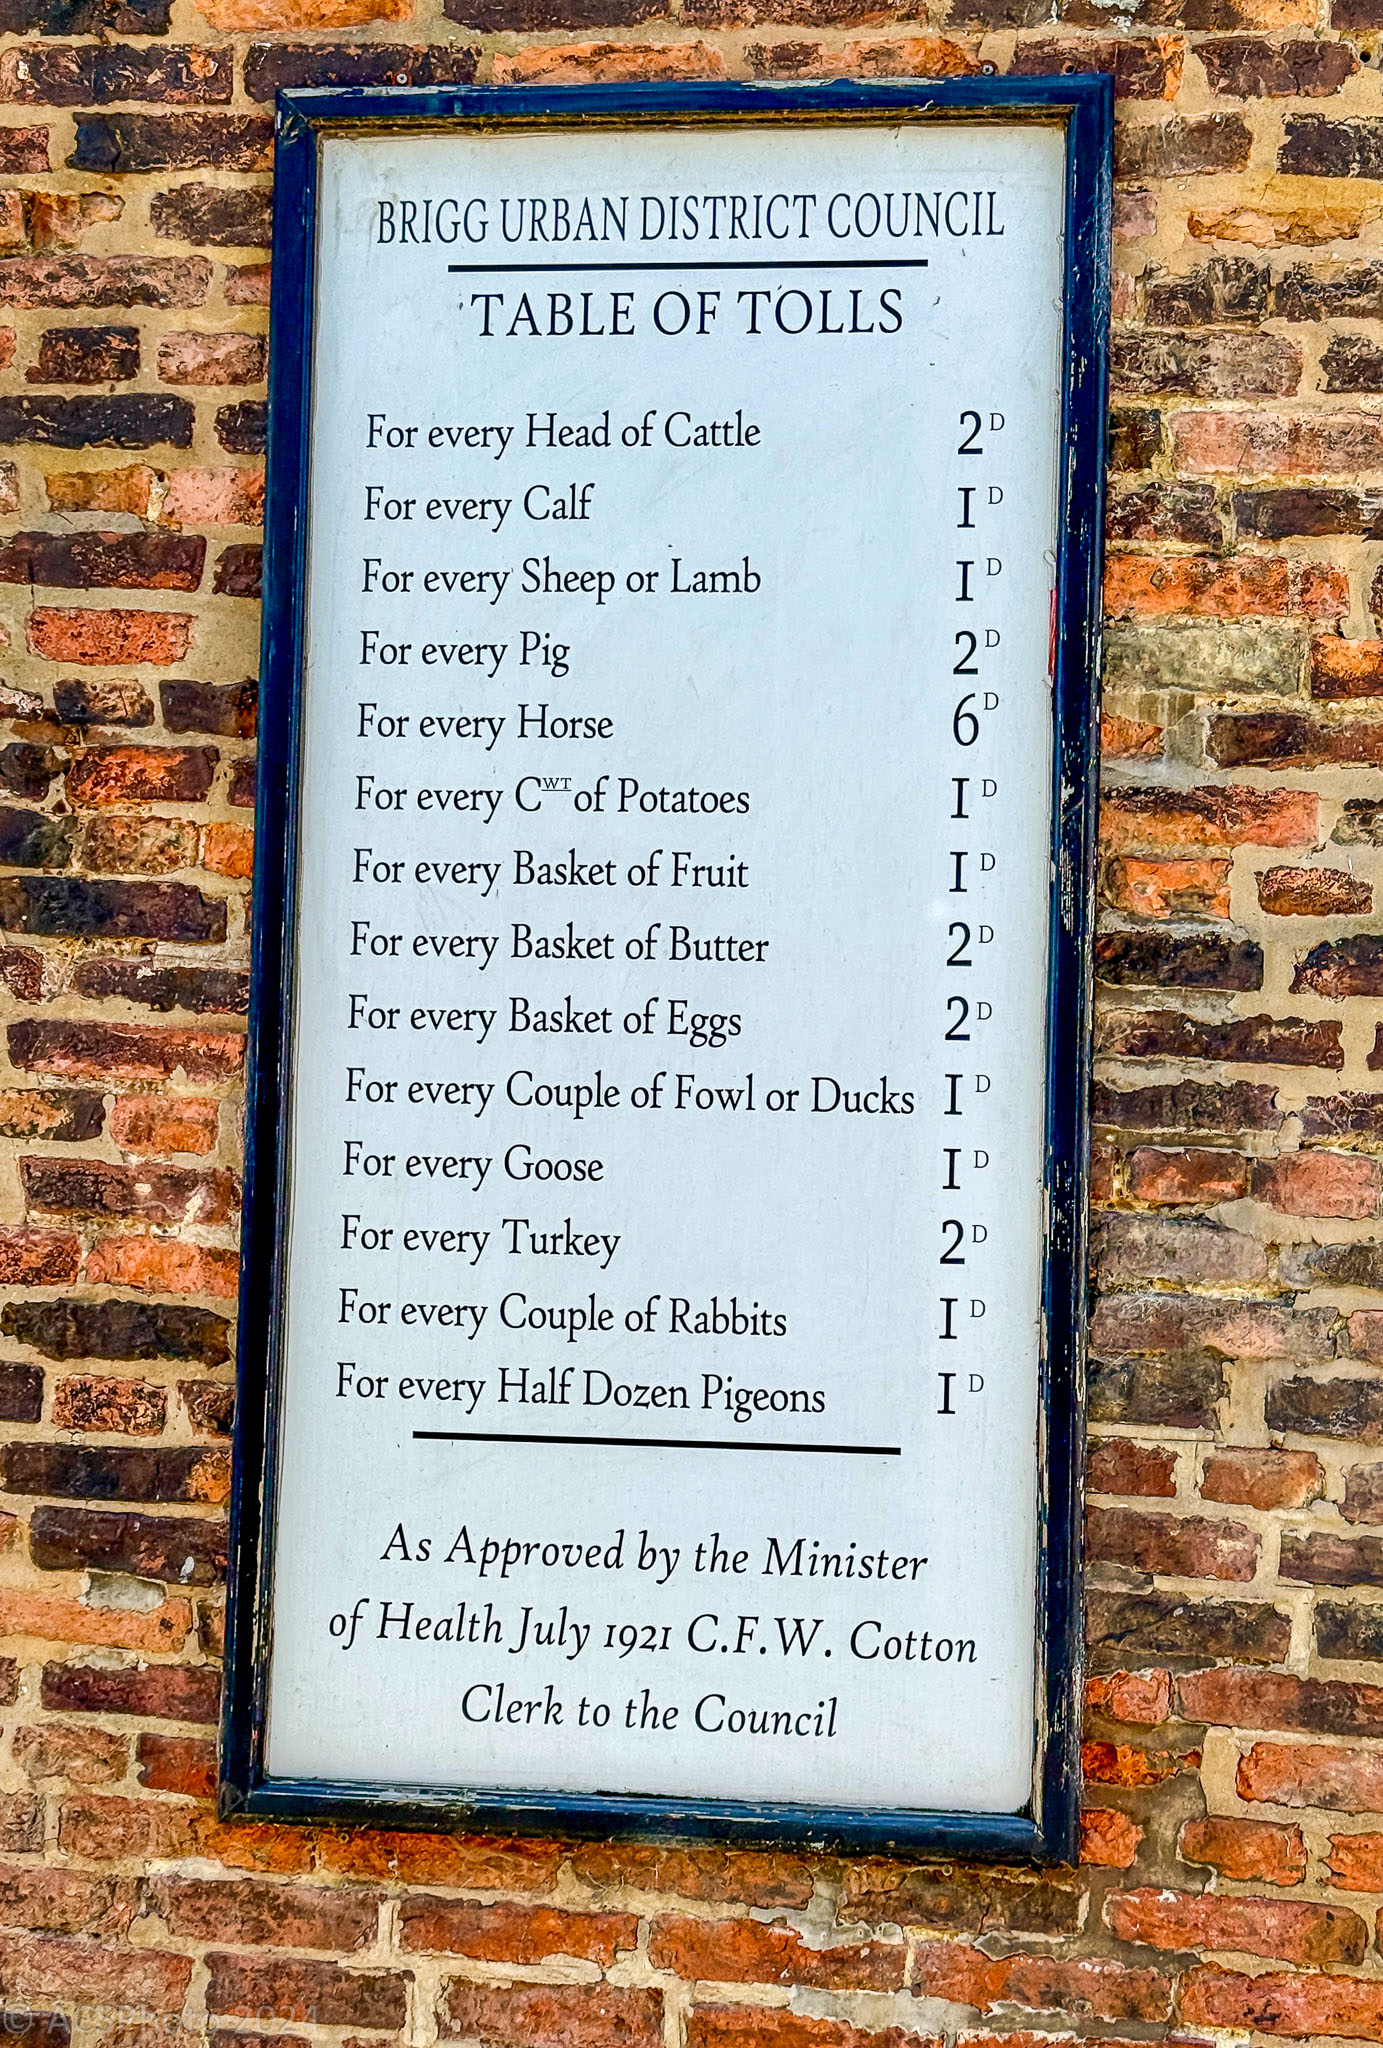 BRIGG URBAN DISTRICT COUNCIL
TABLE OF TOLLS
For every Head of Cattle 2D
For every Calf 1D
For every Sheep or Lamb 1D
For every Pig 2D
For every Horse 6D
For every CWT of Potatoes 1D
For every Basket of Fruit 1D
For every Basket of Butter 2D
For every Basket of Eggs 2D
For every Couple of Fowl or Ducks 1D
For every Goose 1D
For every Turkey 2D
For every Couple of Rabbits 1D
For every Half Dozen Pigeons 1D
As Approved by the Minister
of Health July 1921 C.F.W. Cotton
Clerk to the Council
© ACSPhoto 2024